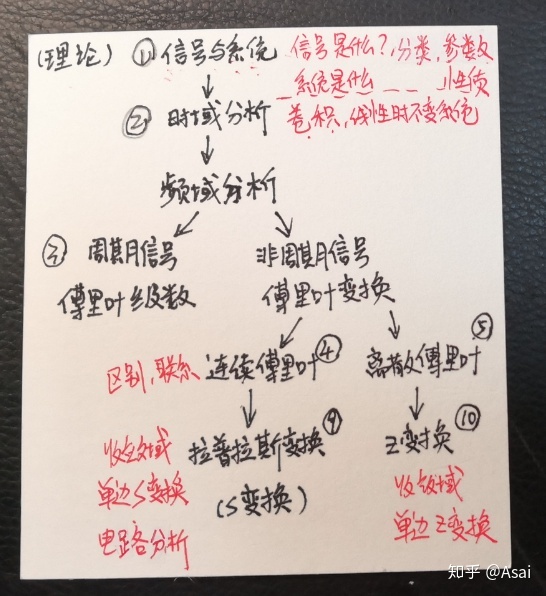 (理论) ① 信号与系统 信号是什么?,分类,参数
系统是什么 性质
② 时域分析 卷积,线性时不变系统
频域分析
③ 周期信号 非周期信号
傅里叶级数 傅里叶变换
区别,联系 连续傅里叶 ④ 离散傅里叶 ⑤
收敛域 拉普拉斯变换 ⑨ Z变换 ⑩
单边S变换 (S变换) 收敛域
电路分析 单边Z变换
知乎 @Asai